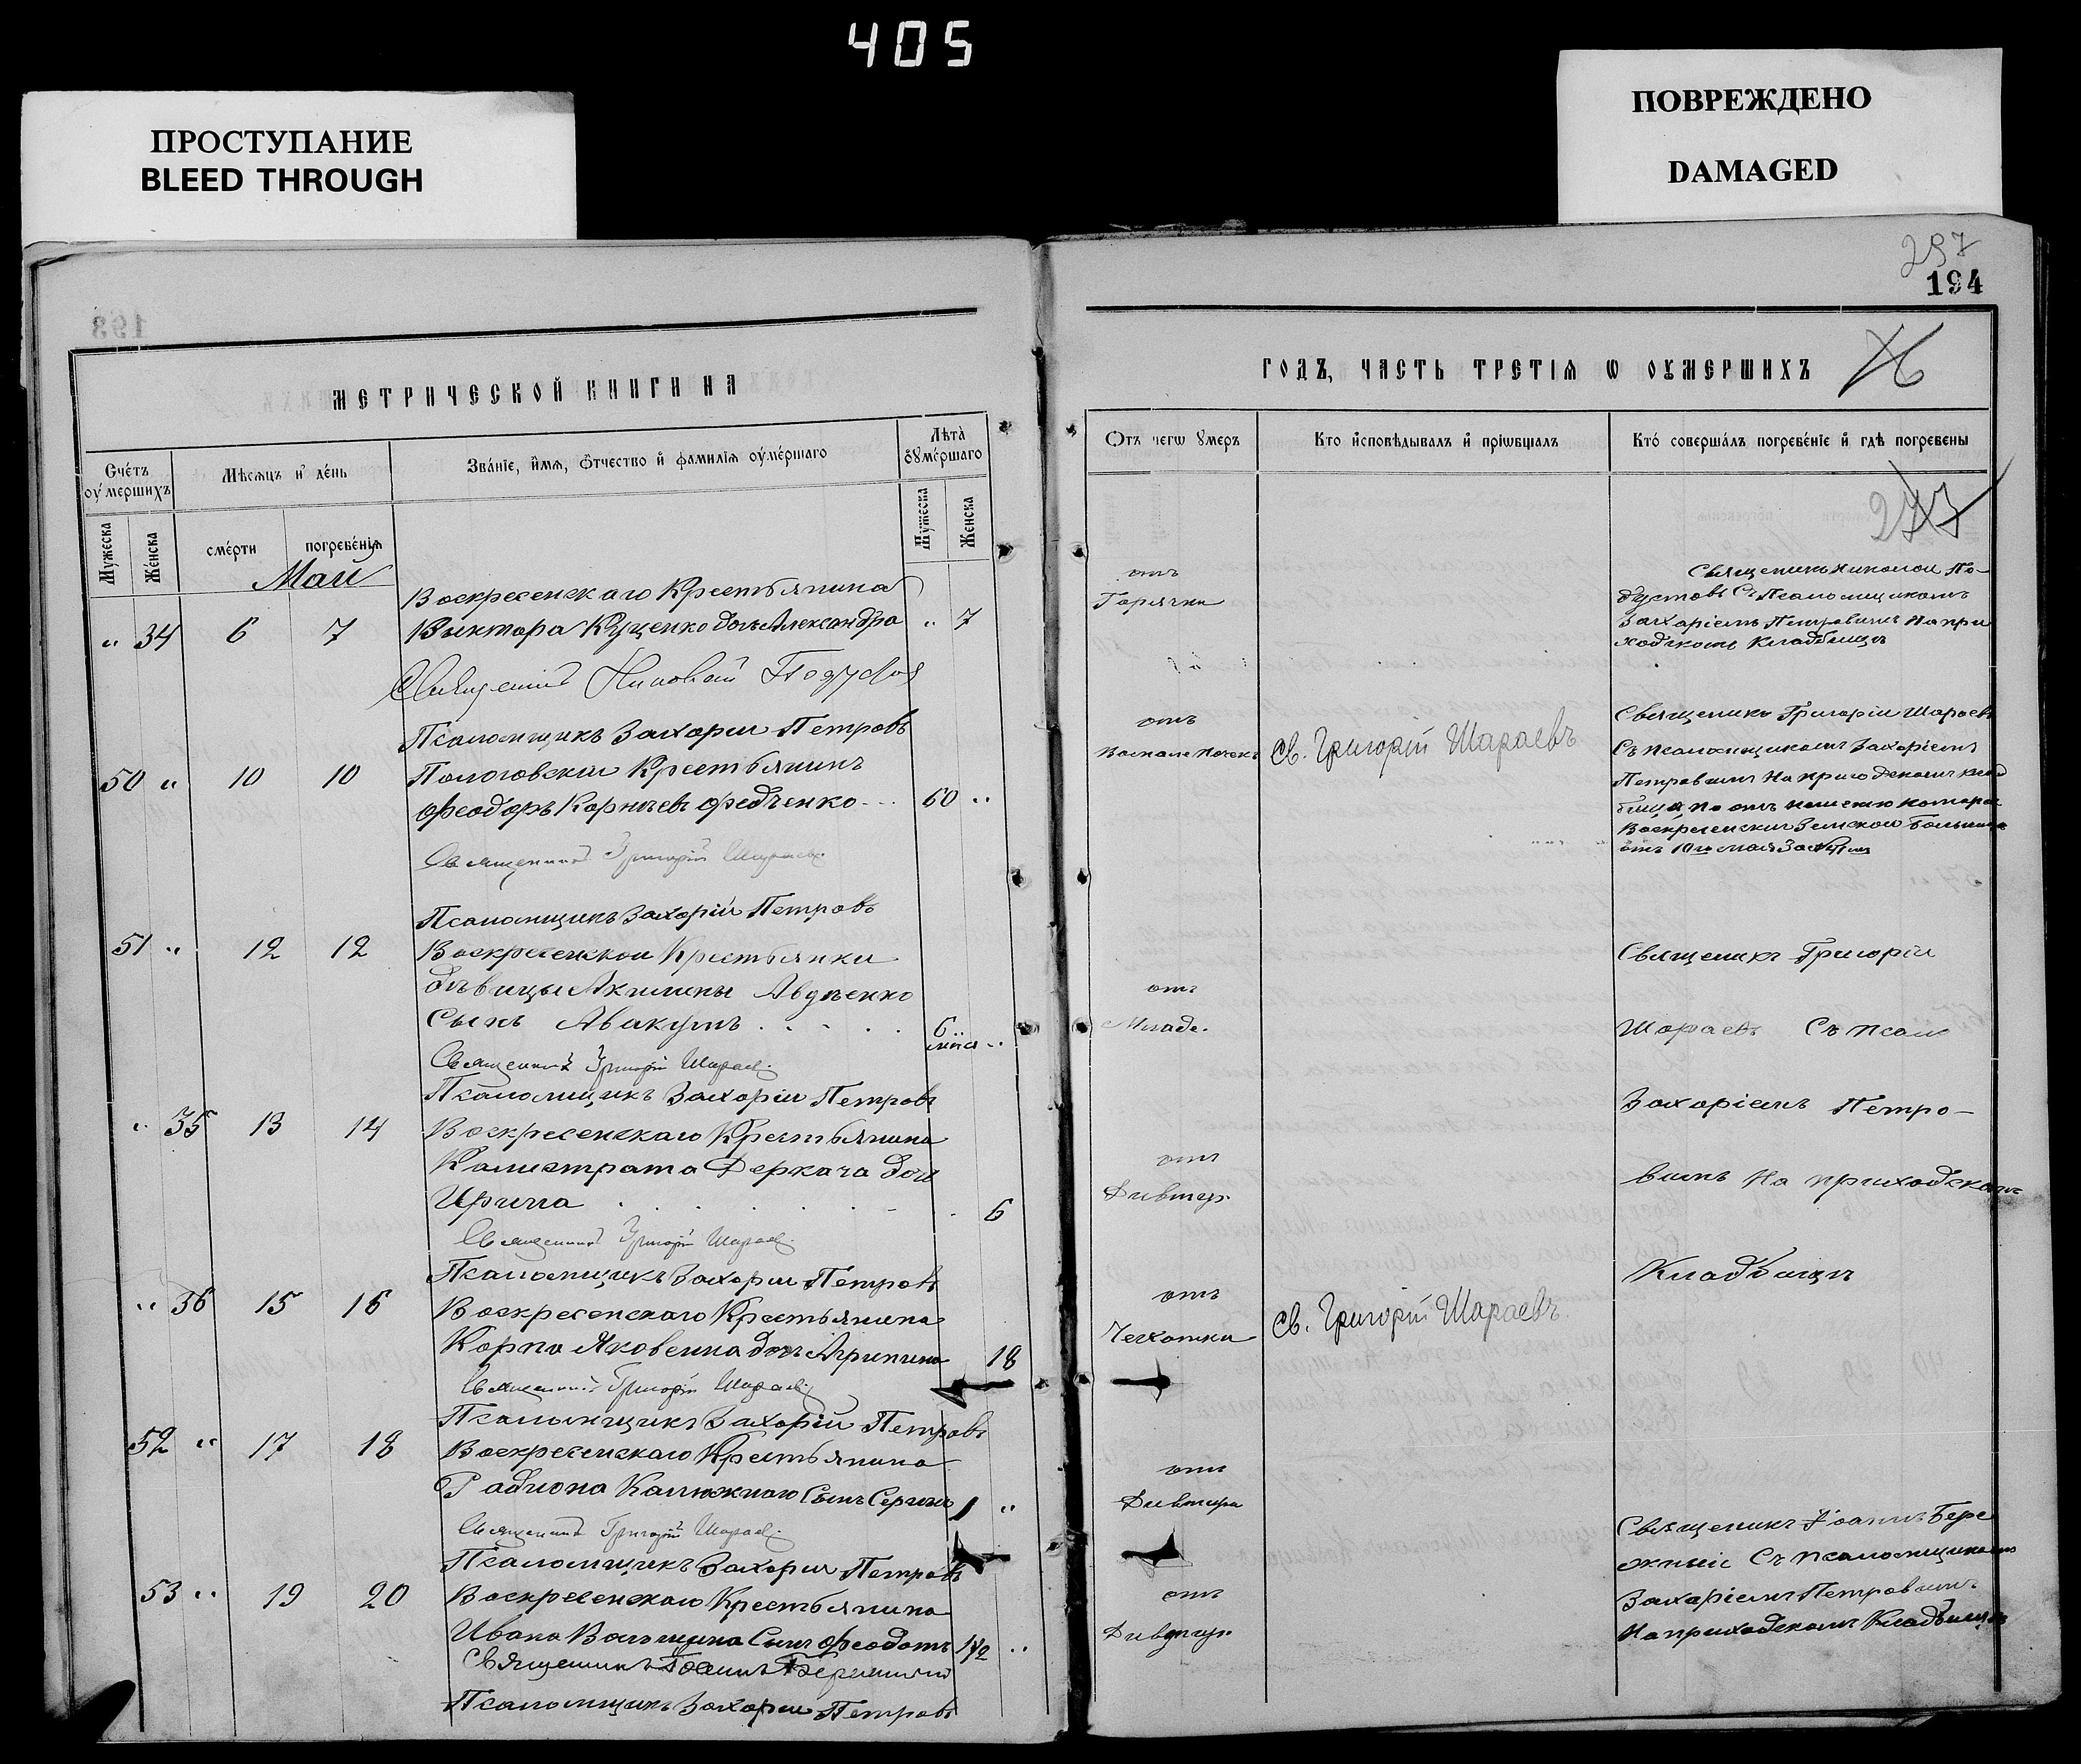 405
ПРОСТУПАНИЕ
BLEED THROUGH
ПОВРЕЖДЕНО
DAMAGED
193
МЕТРИЧЕСКОЙ КНИГИ НА
Счéтъ оу́мершихъ
Мѣсѧцъ и҆ дéнь
Звáнїе, и҆́мѧ, ѻ҆́тчество и҆ фамилїѧ оу҆мéршаго
Лѣтà оу҆мéршаго
Мужеска
Жéнска
смéрти
погребéнїѧ
Мужеска
Женска
Май
Воскресенскаго Крестьянина
" 34 6 7 Виктора Куценко дочь Александра " 7
Священник Николай
Псаломщикъ Захарии Петровъ
50 " 10 10 Пологовскии Крестьянинъ
Феодоръ Корнѣевъ Федченко 60 "
Священник Григорій Шараевъ
Псаломщикъ Захорій Петровъ
51 " 12 12 Воскресенской Крестьянки
дѣвицы Акилины Авдѣенко
Сынъ Авакумъ . . . . 6 мѣся "
Священник Григорій Шараевъ
Псаломщикъ Захоріи Петровъ
" 35 13 14 Воскресенскаго Крестьянина
Калистрата Деркача дочь
Ирина . . . . . . 6
Священник Григорій Шараевъ
Псаломщикъ Захории Петровъ
" 36 15 16 Воскресенскаго Крестьянина
Карпа Яковенка дочь Агрипина 18
Священник Григорій Шараевъ
Псаломщикъ Захорій Петровъ
52 " 17 18 Воскресенскаго Крестьянина
Радиона Калюжнаго Сынъ Сергий 1 "
Священник Григорій Шараевъ
Псаломщикъ Захории Петровъ
53 " 19 20 Воскресенскаго Крестьянина
Ивана Сынъ Феодотъ 1/2 "
Священникъ Іоаннъ
Псаломщикъ Захории Петровъ
297
194
ГОДЪ, ЧАСТЬ ТРЕТІѦ Ѡ ОУМЕРШИХЪ
Отъ чегѡ ꙋмеръ
Кто и҆сповѣдывалъ и҆ прїѡбщалъ
Ктó совершáлъ погребéнїе и҆ гдѣ погребены
277
отъ
Горячки
Священникъ Николай По-
дустовъ Съ Псаломщикомъ
Захоріемъ Петровымъ На при
ходскомъ Кладбищѣ
отъ
св. Григорій Шараевъ
Священикъ Григоріи Шараевъ
Съ псаломщикомъ Захоріемъ
Петровымъ На приходскомъ клад
бищѣ по отношению
Воскресенскии Земской Больницы
отъ 10го мая За №
отъ
Младе.
Священикъ Григоріи
Шараевъ Съ псалм
Захоріемъ Петро-
вымъ На приходскомъ
Кладбищѣ
отъ
Дивтер.
отъ
Чехотки
св. Григорій Шараевъ
отъ
Дивтира
отъ
Дивтир.
Священикъ Іоаннъ Бере
жный Съ псаломщикомъ
Захоріемъ Петровымъ
На приходскомъ Кладбищѣ